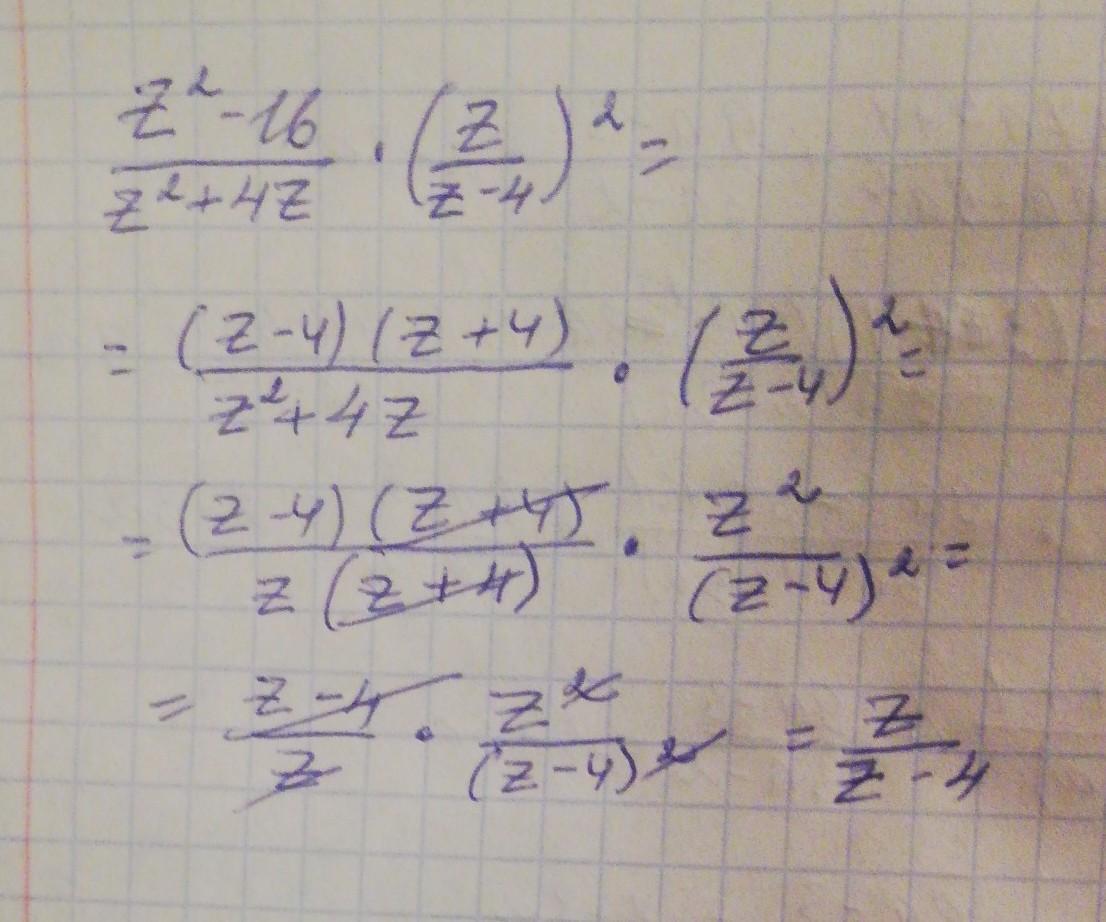 (z² - 16)/(z² + 4z) · (z/(z - 4))² =
= ((z - 4)(z + 4))/(z² + 4z) · (z/(z - 4))² =
= ((z - 4)(z + 4))/(z(z + 4)) · z²/(z - 4)² =
= (z - 4)/z · z²/(z - 4)² = z/(z - 4)